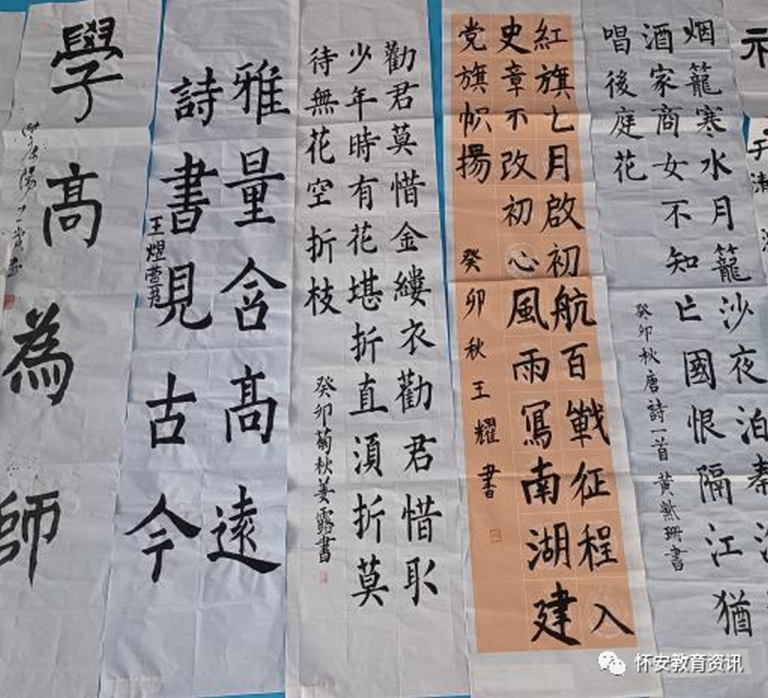 烟籠寒水月籠沙夜泊秦
酒家商女不知亡國恨隔江猶
唱後庭花
癸卯秋唐詩一首黄珊書
紅旗七月啟初航百戰征程入
史章不改初心風雨寫南湖建
党旗帜揚
癸卯秋王耀書
勸君莫惜金縷衣勸君惜取
少年時有花堪折直須折莫
待無花空折枝
癸卯菊秋姜露書
雅量含高遠
詩書見古今
王煜萱
學高為師
怀安教育资讯